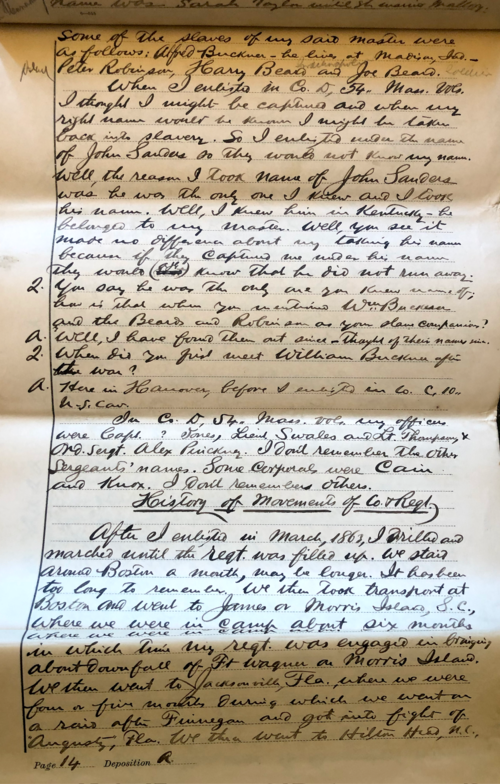 name was Sarah Taylor until she
Some of the slaves of my said master were
as follows: Alfred Buckner - he lives at Madison, Ind. -
Peter Robinson, Harry Beard and Joe Beard.
When I enlisted in Co. D, 54. Mass. Vols.
I thought I might be captured and when my
right name would be known I might be taken
back into slavery. So I enlisted under the name
of John Sanders so they would not know my name.
Well, the reason I took name of John Sanders
was, he was the only one I knew and I took
his name. Well, I knew him in Kentucky - he
belonged to my master. Well, you see it
made no difference about my taking his name
because if they captured me under his name
they would know that he did not run away.
Q. You say he was the only one you knew name of;
how is that when you mentioned Wm Buckner
and the Beards and Robinson as your slave companions?
A. Well, I have found them out since - thought of their names since.
Q. When did you first meet William Buckner after
the war?
A. Here in Hanover, before I enlisted in Co. C, 10.
U.S. Cav.
In Co. D, 54. Mass. Vols. my officers
were Capt. ? Jones, Lieut Swales and Lt. Thompson, &
Ord. Sergt. Alex I don't remember the other
Sergeants' names. Some Corporals were Cain
and Knox. I don't remember others.
History of Movements of Co. & Regt.
After I enlisted in March, 1863, I drilled and
marched until the regt. was filled up. We staid
around Boston a month, may be longer. It has been
too long to remember. We then took transport at
Boston and went to James or Morris Island, S.C.,
where we were in camp about six months
in which time my regt. was engaged in bringing
about downfall of Ft Wagner on Morris Island.
We then went to Jacksonville, Fla. where we were
four or five months during which we went on
a raid after Finnegan and got into fight of
Augusty, Fla. We then went to Hilton Head, N.C.,
Page 14 Deposition A.